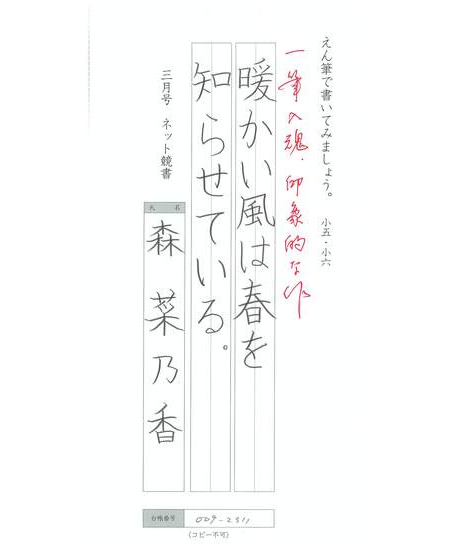 えん筆で書いてみましょう。 小五・小六
一筆入魂・印象的な作
暖かい風は春を
知らせている。
三月号 ネット競書
氏名
森菜乃香
台帳番号 009-2311
(コピー不可)